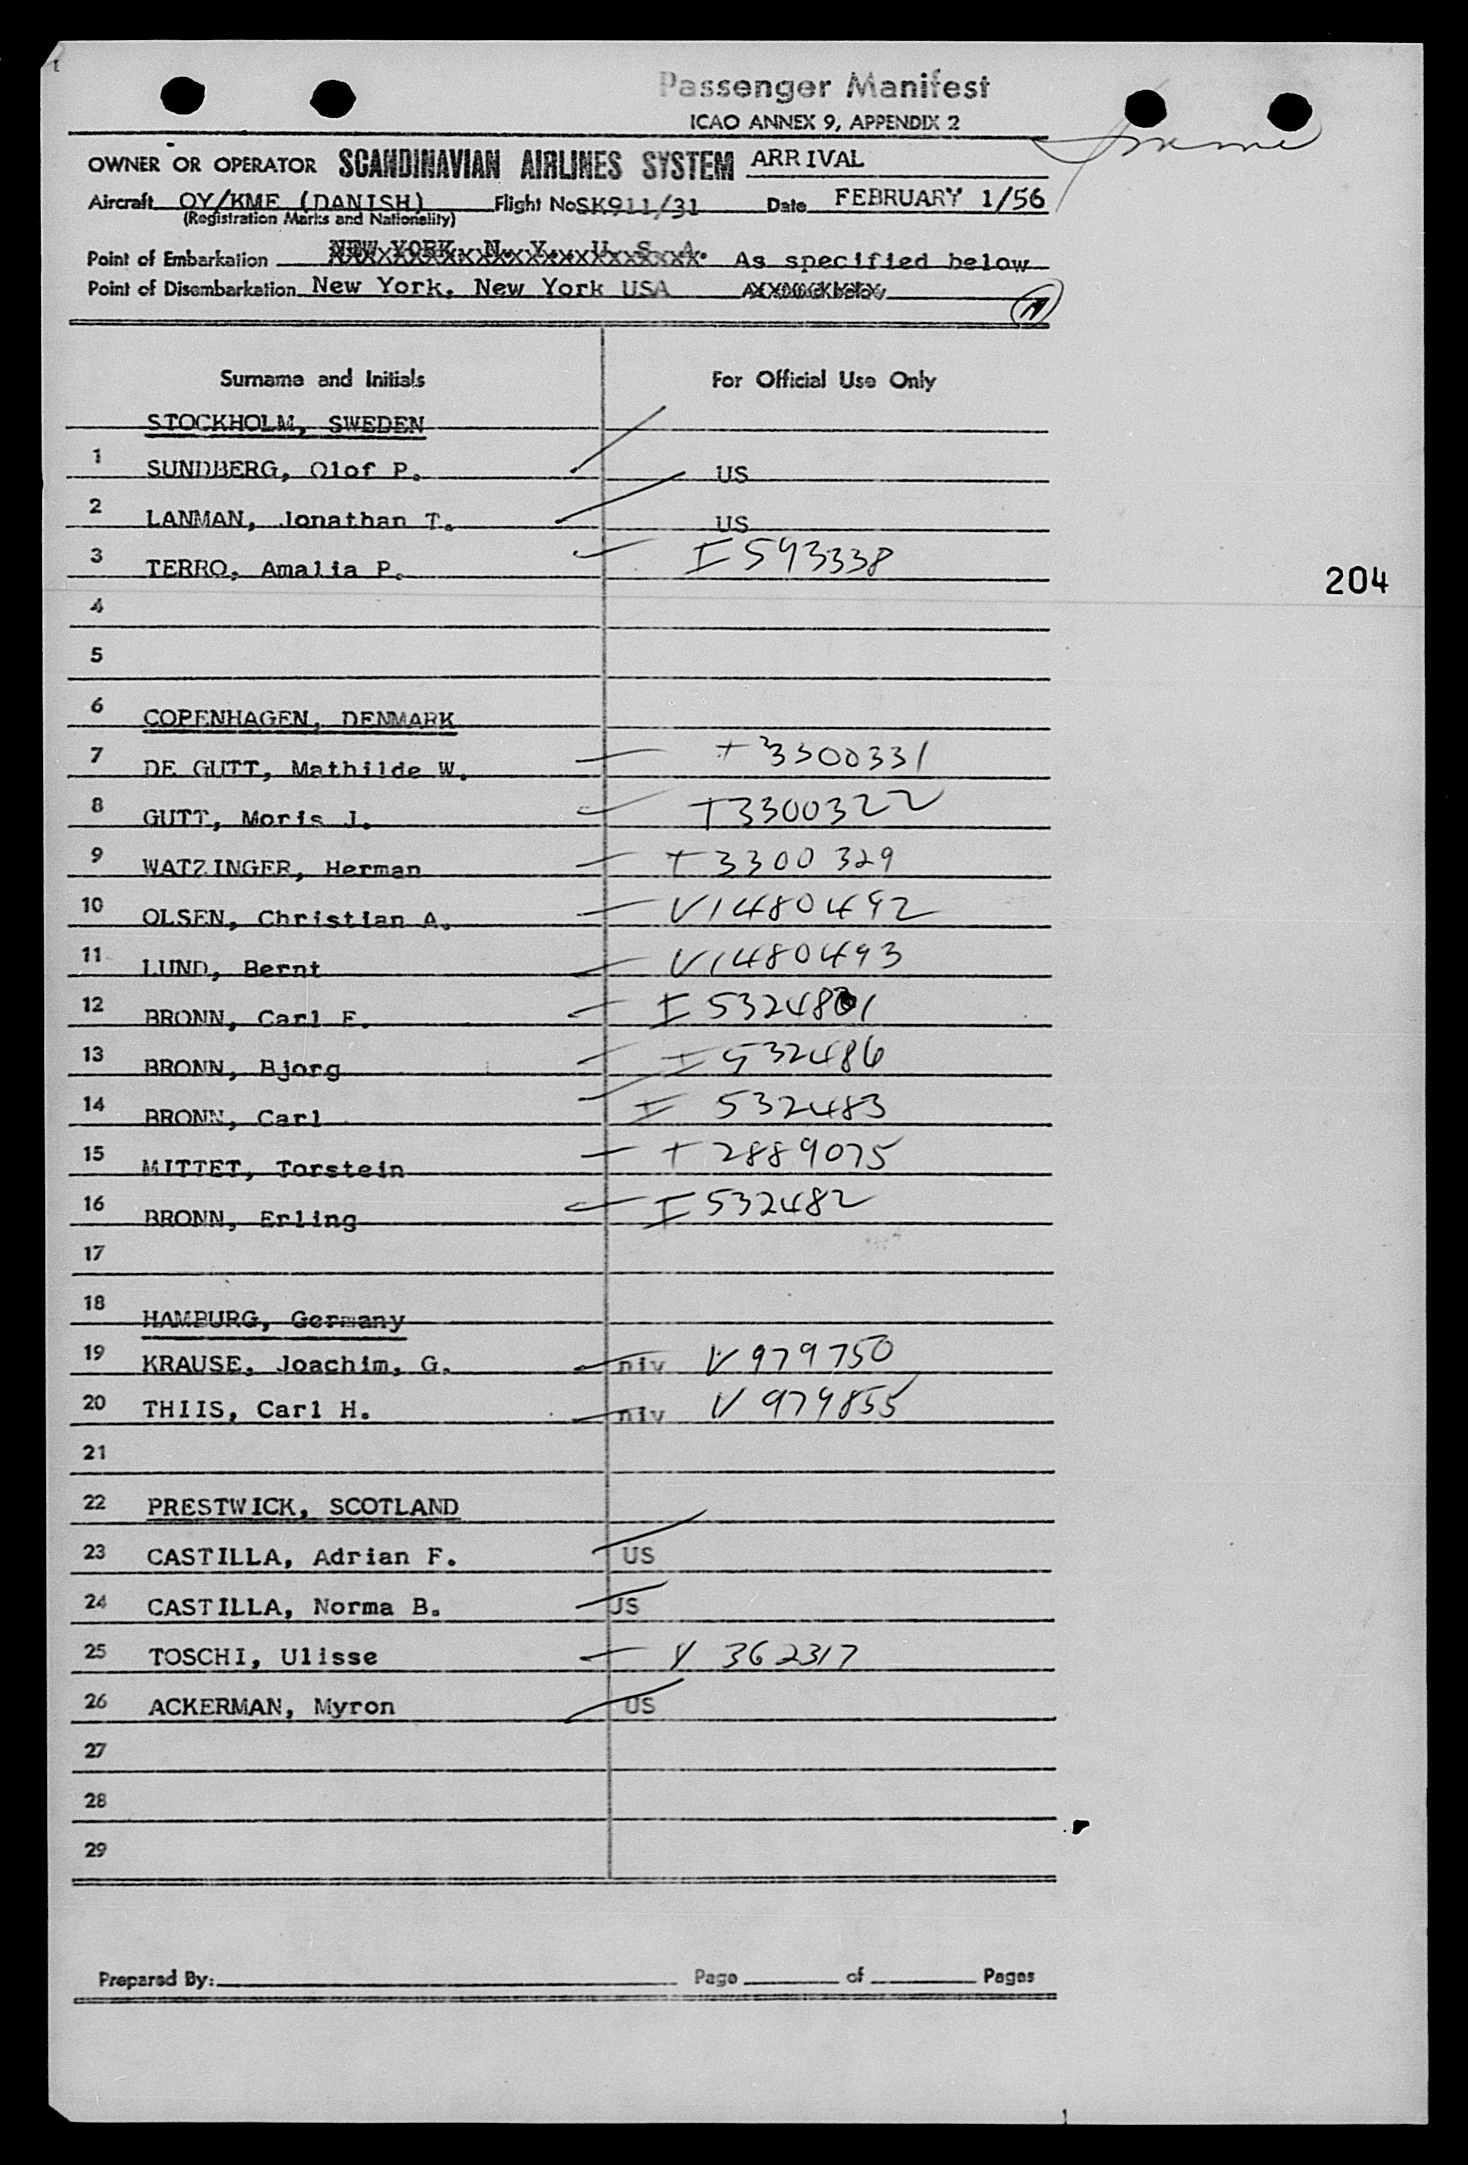 Passenger Manifest
ICAO ANNEX 9, APPENDIX 2
OWNER OR OPERATOR SCANDINAVIAN AIRLINES SYSTEM ARRIVAL
Aircraft OY/KME (DANISH) Flight No SK911/31 Date FEBRUARY 1/56
(Registration Marks and Nationality)
Point of Embarkation NEW YORK, N. Y., U. S. A. As specified below
Point of Disembarkation New York, New York USA
Surname and Initials For Official Use Only
STOCKHOLM, SWEDEN
1 SUNDBERG, Olof P. US
2 LANMAN, Jonathan T. US
3 TERRO, Amalia P. I 593338
204
4
5
6 COPENHAGEN, DENMARK
7 DE GUTT, Mathilde W. + 3300331
8 GUTT, Moris J. T3300322
9 WATZINGER, Herman + 3300 329
10 OLSEN, Christian A. V1480492
11 LUND, Bernt V1480493
12 BRONN, Carl F. I 532481
13 BRONN, Bjorg I 532486
14 BRONN, Carl I 532483
15 MITTET, Torstein + 2889075
16 BRONN, Erling I 532482
17
18 HAMBURG, Germany
19 KRAUSE, Joachim, G. niv V 979750
20 THIIS, Carl H. niv V 979855
21
22 PRESTWICK, SCOTLAND
23 CASTILLA, Adrian F. US
24 CASTILLA, Norma B. US
25 TOSCHI, Ulisse V 362317
26 ACKERMAN, Myron US
27
28
29
Prepared By: Page of Pages